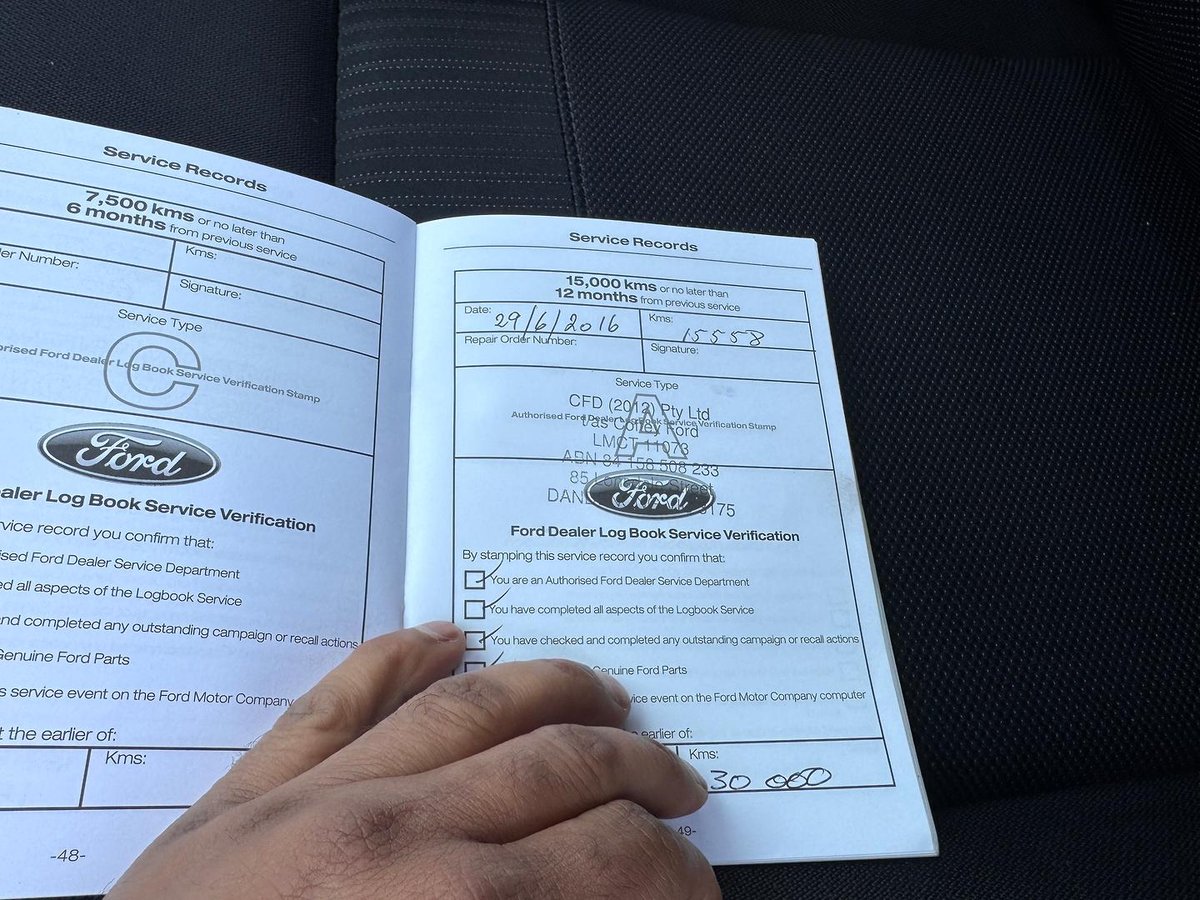 Service Records
7,500 kms or no later than
6 months from previous service
Number:
Kms:
Signature:
Service Type
Ford Dealer Log Book Service Verification Stamp
C
Ford
Log Book Service Verification
service record you confirm that:
Ford Dealer Service Department
all aspects of the Logbook Service
and completed any outstanding campaign or recall actions
Genuine Ford Parts
service event on the Ford Motor Company
the earlier of:
Kms:
-48-
Service Records
15,000 kms or no later than
12 months from previous service
Date: 29/6/2016
Kms: 15558
Repair Order Number:
Signature:
Service Type
CFD (2012) Pty Ltd
A
Authorised Ford Dealer Log Book Service Verification Stamp
t/as Ford
LMCT 11073
ABN 84 158 508 233
85 Street
175
Ford
Ford Dealer Log Book Service Verification
By stamping this service record you confirm that:
You are an Authorised Ford Dealer Service Department
You have completed all aspects of the Logbook Service
You have checked and completed any outstanding campaign or recall actions
Genuine Ford Parts
event on the Ford Motor Company computer
earlier of:
Kms:
30 000
49-